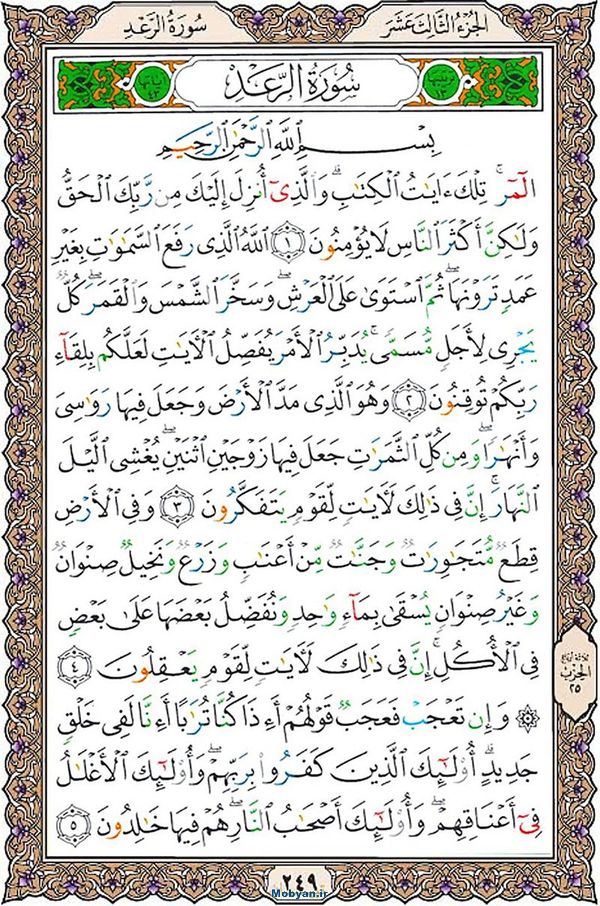 الجُزْءُ الثَّالِثَ عَشَرَ
سُورَةُ الرَّعْدِ
سُورَةُ الرَّعْدِ
بِسْمِ اللَّهِ الرَّحْمَٰنِ الرَّحِيمِ
الٓمٓرۚ تِلْكَ ءَايَٰتُ ٱلْكِتَٰبِۗ وَٱلَّذِىٓ أُنزِلَ إِلَيْكَ مِن رَّبِّكَ ٱلْحَقُّ
وَلَٰكِنَّ أَكْثَرَ ٱلنَّاسِ لَا يُؤْمِنُونَ ١ ٱللَّهُ ٱلَّذِى رَفَعَ ٱلسَّمَٰوَٰتِ بِغَيْرِ
عَمَدٍ تَرَوْنَهَاۖ ثُمَّ ٱسْتَوَىٰ عَلَى ٱلْعَرْشِۖ وَسَخَّرَ ٱلشَّمْسَ وَٱلْقَمَرَۖ كُلٌّ
يَجْرِى لِأَجَلٍ مُّسَمًّىۚ يُدَبِّرُ ٱلْأَمْرَ يُفَصِّلُ ٱلْءَايَٰتِ لَعَلَّكُم بِلِقَآءِ
رَبِّكُمْ تُوقِنُونَ ٢ وَهُوَ ٱلَّذِى مَدَّ ٱلْأَرْضَ وَجَعَلَ فِيهَا رَوَٰسِىَ
وَأَنْهَٰرًاۖ وَمِن كُلِّ ٱلثَّمَرَٰتِ جَعَلَ فِيهَا زَوْجَيْنِ ٱثْنَيْنِۖ يُغْشِى ٱلَّيْلَ
ٱلنَّهَارَۚ إِنَّ فِى ذَٰلِكَ لَءَايَٰتٍ لِّقَوْمٍ يَتَفَكَّرُونَ ٣ وَفِى ٱلْأَرْضِ
قِطَعٌ مُّتَجَٰوِرَٰتٌ وَجَنَّٰتٌ مِّنْ أَعْنَٰبٍ وَزَرْعٌ وَنَخِيلٌ صِنْوَانٌ
وَغَيْرُ صِنْوَانٍ يُسْقَىٰ بِمَآءٍ وَٰحِدٍ وَنُفَضِّلُ بَعْضَهَا عَلَىٰ بَعْضٍ
فِى ٱلْأُكُلِۚ إِنَّ فِى ذَٰلِكَ لَءَايَٰتٍ لِّقَوْمٍ يَعْقِلُونَ ٤
۞ وَإِن تَعْجَبْ فَعَجَبٌ قَوْلُهُمْ أَءِذَا كُنَّا تُرَٰبًا أَءِنَّا لَفِى خَلْقٍ
جَدِيدٍۗ أُو۟لَٰٓئِكَ ٱلَّذِينَ كَفَرُوا۟ بِرَبِّهِمْۖ وَأُو۟لَٰٓئِكَ ٱلْأَغْلَٰلُ
فِىٓ أَعْنَاقِهِمْۖ وَأُو۟لَٰٓئِكَ أَصْحَٰبُ ٱلنَّارِۖ هُمْ فِيهَا خَٰلِدُونَ ٥
الحزب
٢٥
٢٤٩
Mobyan.ir